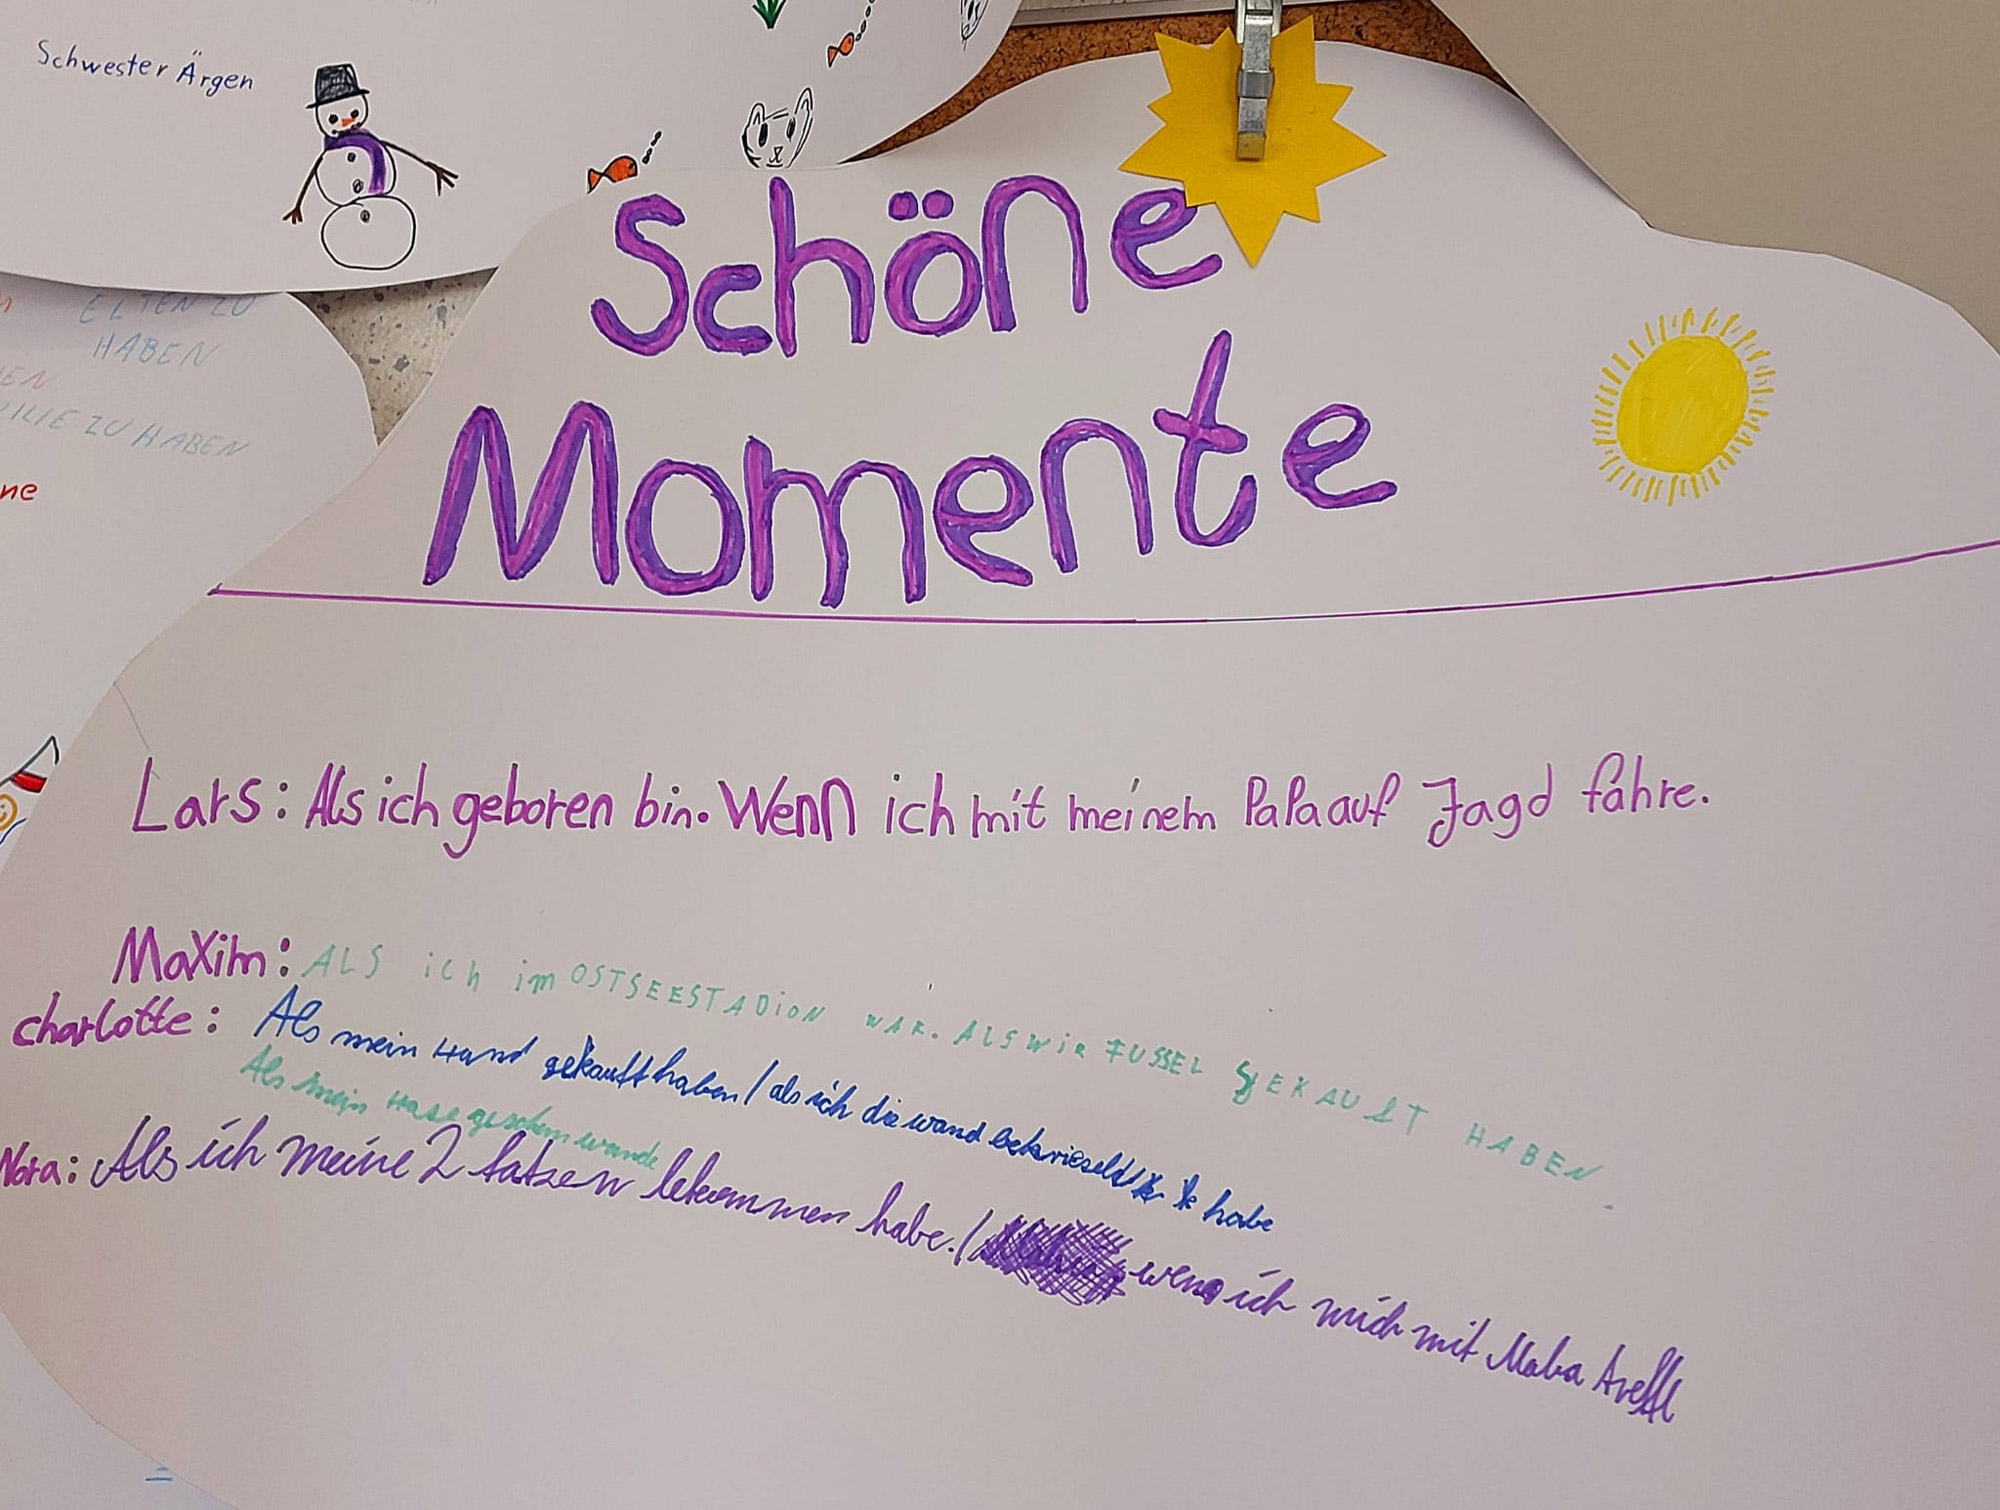 Schwester Ärgen
ELTEN ZU
HABEN
ZU HABEN
ne
Schöne
Momente
Lars: Als ich geboren bin. Wenn ich mit meinem Papa auf Jagd fahre.
Maxim: ALS ich im OSTSEESTADiON WAR. ALS WiR FUSSEL GEKAUFT HABEN
charlotte: Als mein Hund gekauft haben / als ich die wand bekrieseld habe
Als mein Hase geschen wurde
Nora: Als ich meine 2 katzen bekommen habe. / wenn ich mich mit Maba treffe